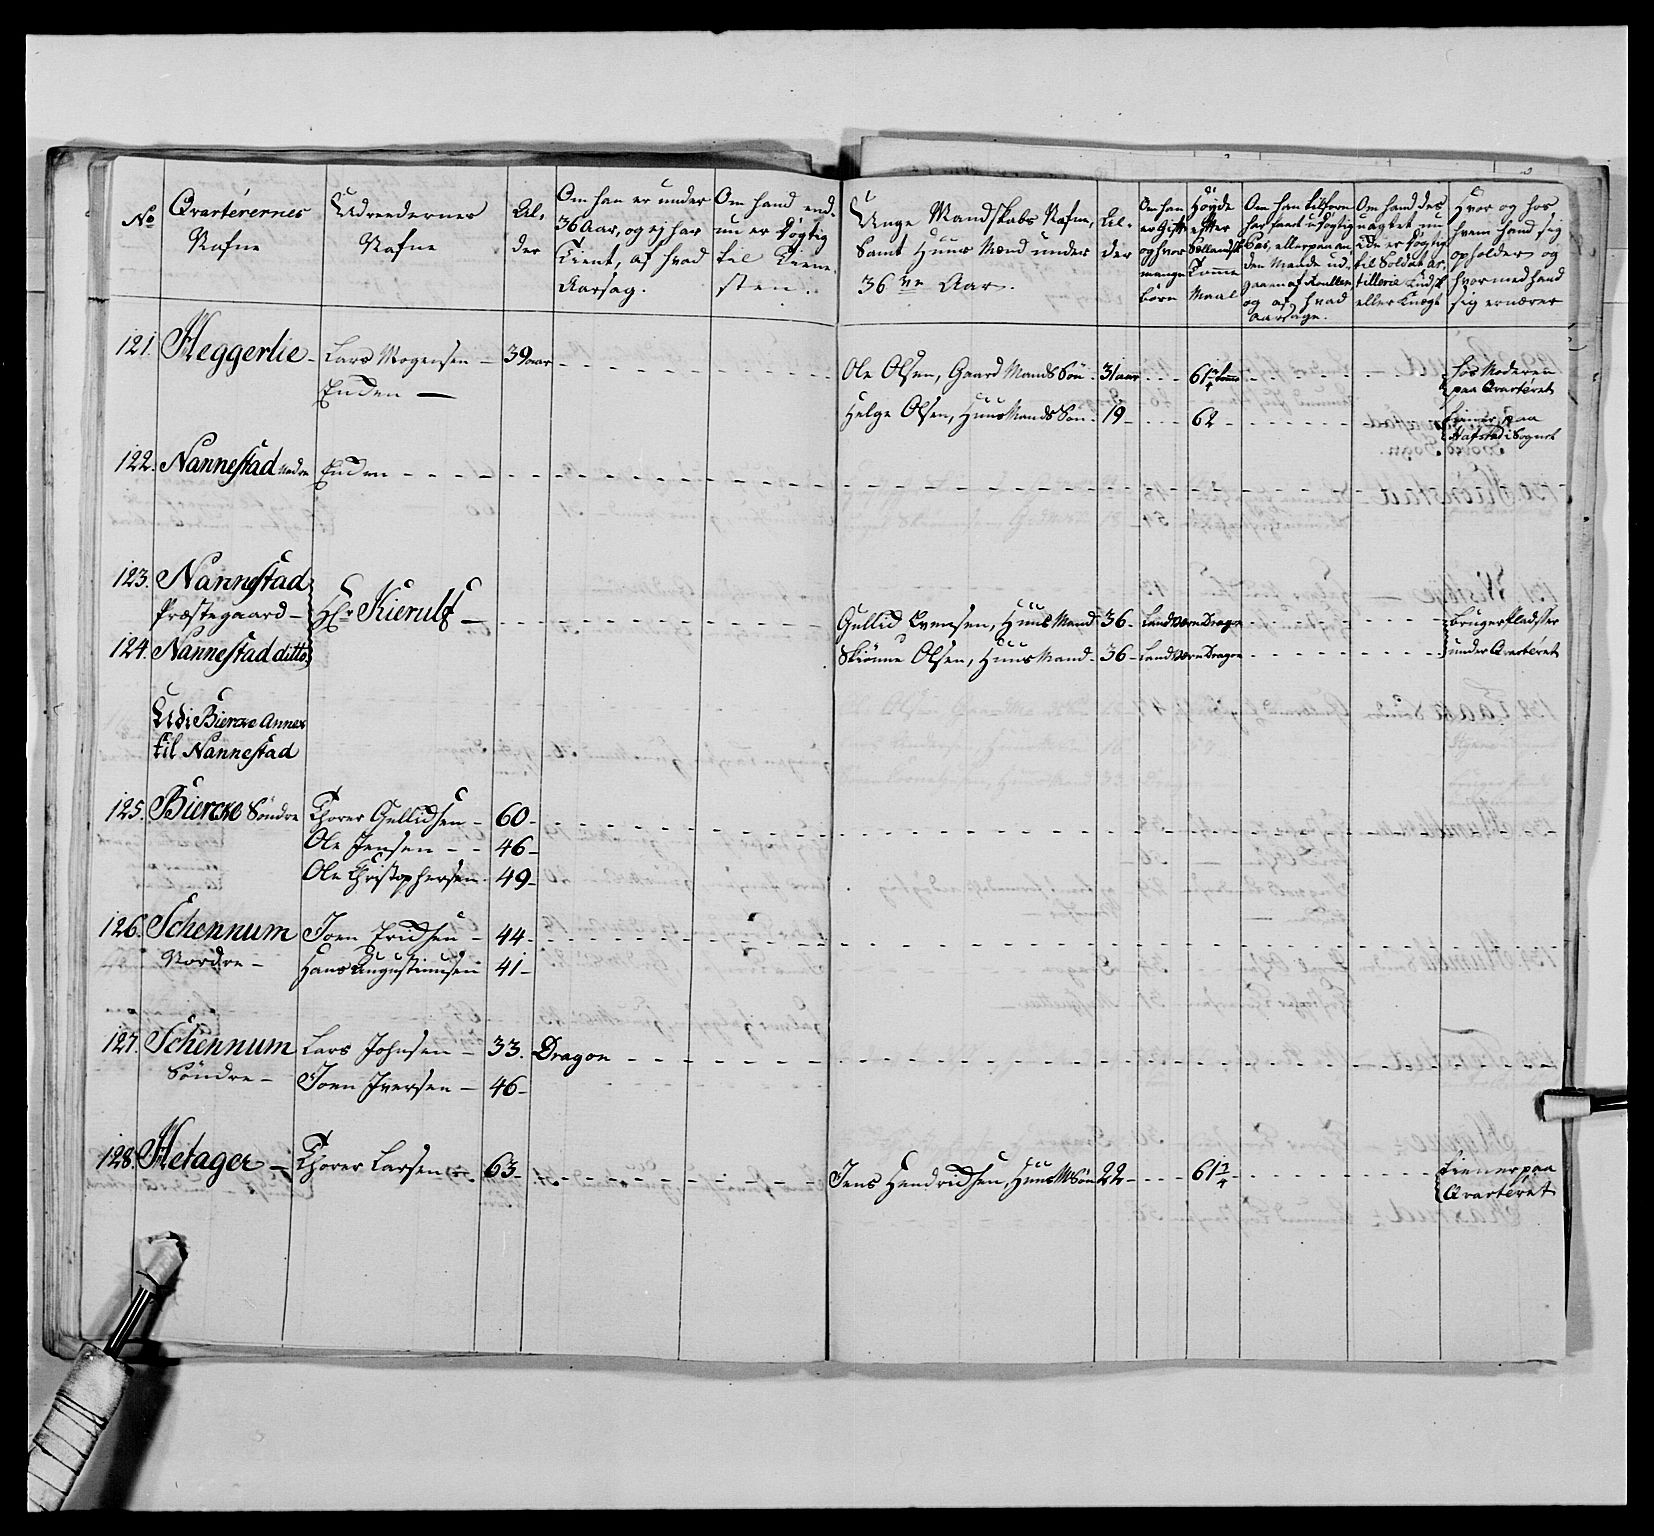 No
Qvarterernes
Nafne
Udreedernes
Nafne
Al-
der
Om han er under
36 Aar, og ej har
Tient, af hvad
Aarsag.
Om hand end-
nu er døgtig
til Tiene-
sten.
Unge Mandskabs Nafne,
Samt Huus Mænd under
36ve Aar.
Al-
der
Om han
er Gift
og hvor
mange
börn
Höyde
efter
Sællandsk
Tomme
Maal
Om han tilforn
har staaet
den Maade ud-
gaaen af Rullen
og af hvad
aarsage.
Om hand des
uagtet nu
er døgtig
til Soldat Ar-
tillerie Kudsk
eller Knegt
Hvor og hos
hvem hand sig
opholder og
hvormed hand
sig ernærer
121. Heggerlie - Lars Mogensen - 39 aar
Enken -
Ole Olsen, Gaard Mands Søn 31 aar 61 3/4 tomme hos Moderen
paa Qvarteret
Helge Olsen, Huus Mands Søn. 19 - 62 - tiener paa
Hafstad i Sognet
122. Nannestad Nedre Enken
123. Nannestad
Præstegaard -
Hr. Kierulf -
Gullid Evensen, Huus Mand 36 - Land Værn Dragon bruger Pladser
124. Nannestad ditto
Skiønne Olsen, Huus Mand - 36 - Land Værn Dragon under Qvarteret
Udi Biercke Annex
til Nannestad
125. Biercke Söndre Thorer Gullidsen - 60 -
Ole Jensen - - 46 -
Ole Christophersen. 49 -
126. Schennum Joen Iridsen - 44 -
Nordre - Hans Augustinusen 41 -
127. Schennum Lars Johnsen - 33. Dragon
Söndre - Joen Iversen - 46 -
128. Hetager - Thorer Larsen 63 -
Jens Hendridsen, Huus M Søn 22 - 61 3/4 tiener paa
Qvarteret